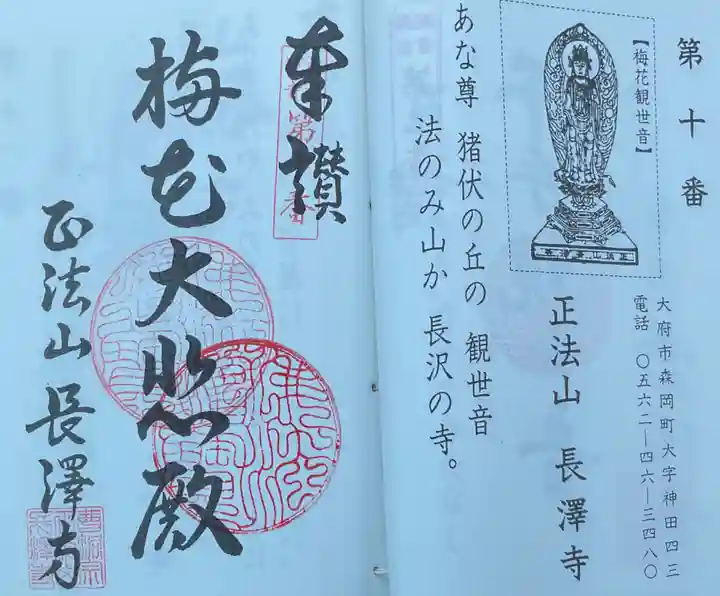 第十番
【梅花観世音】
正法山長澤寺
大府市森岡町大字神田四三
電話 〇五六二―四六―三四八〇
正法山 長澤寺
あな尊 猪伏の丘の 観世音
法のみ山か 長沢の寺。
奉讃
第十番
梅花大悲殿
正法山 長澤寺